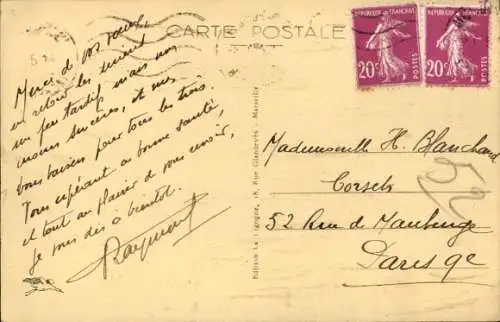 CARTE POSTALE
REPUBLIQUE FRANÇAISE
20c
POSTES
REPUBLIQUE FRANÇAISE
20c
POSTES
Merci de vos vœux,
en retour les miens
un peu tardifs mais non
moins sincères, et mes
bons baisers pour tous les trois.
Vous espérant en bonne santé,
et tout au plaisir de vous revoir,
je vous dis à bientôt.
Raymond
Edition La Cigogne, Rue Glandevès - Marseille
Mademoiselle H. Blanchard
Corsets
52 Rue de Maubeuge
Paris 9e
52